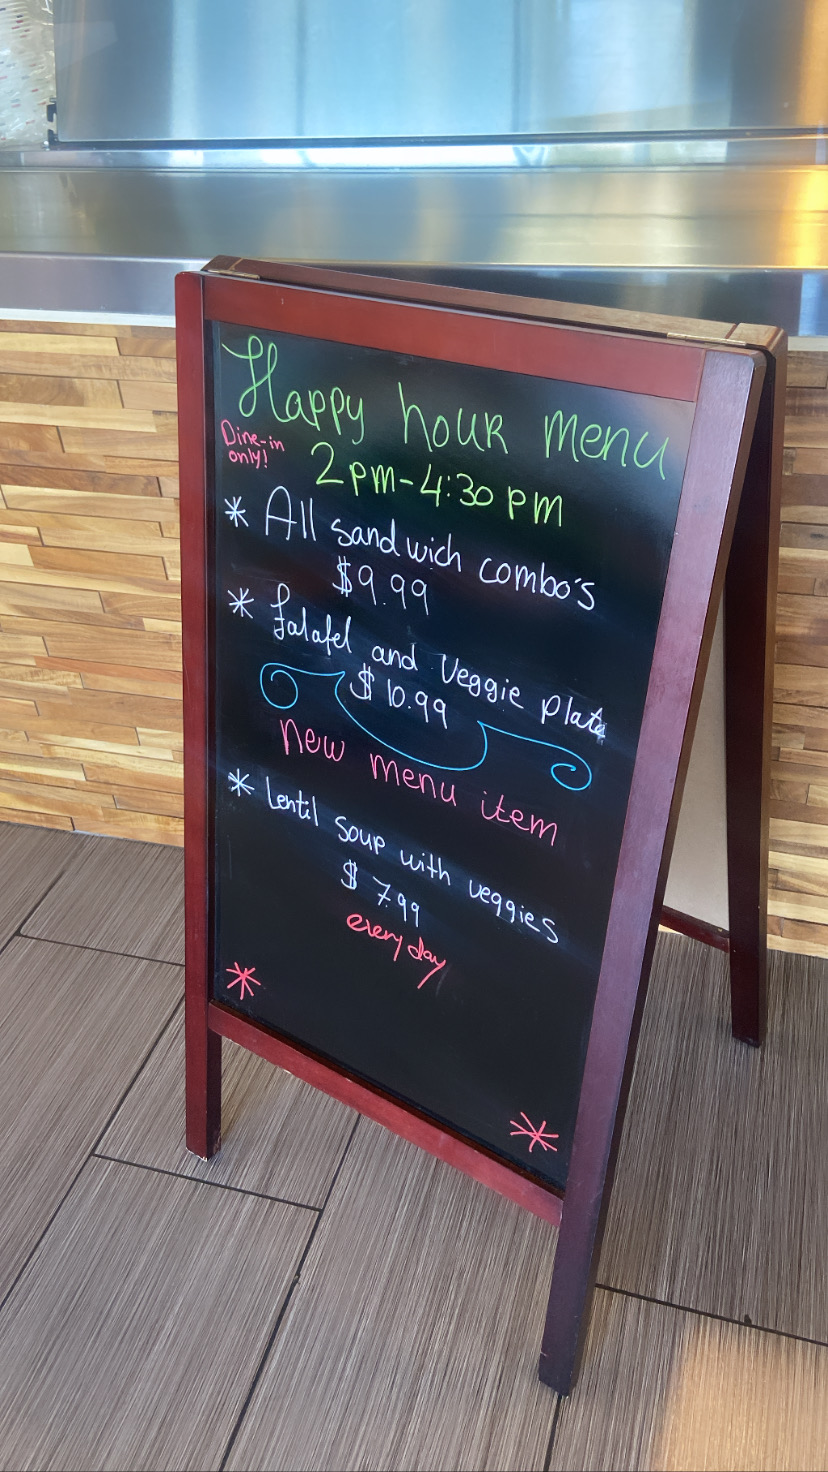 Happy hour menu
Dine-in
only!
2pm-4:30pm
* All sandwich combo's
$9.99
* falafel and Veggie plate
$10.99
new menu item
* lentil soup with veggies
$7.99
every day